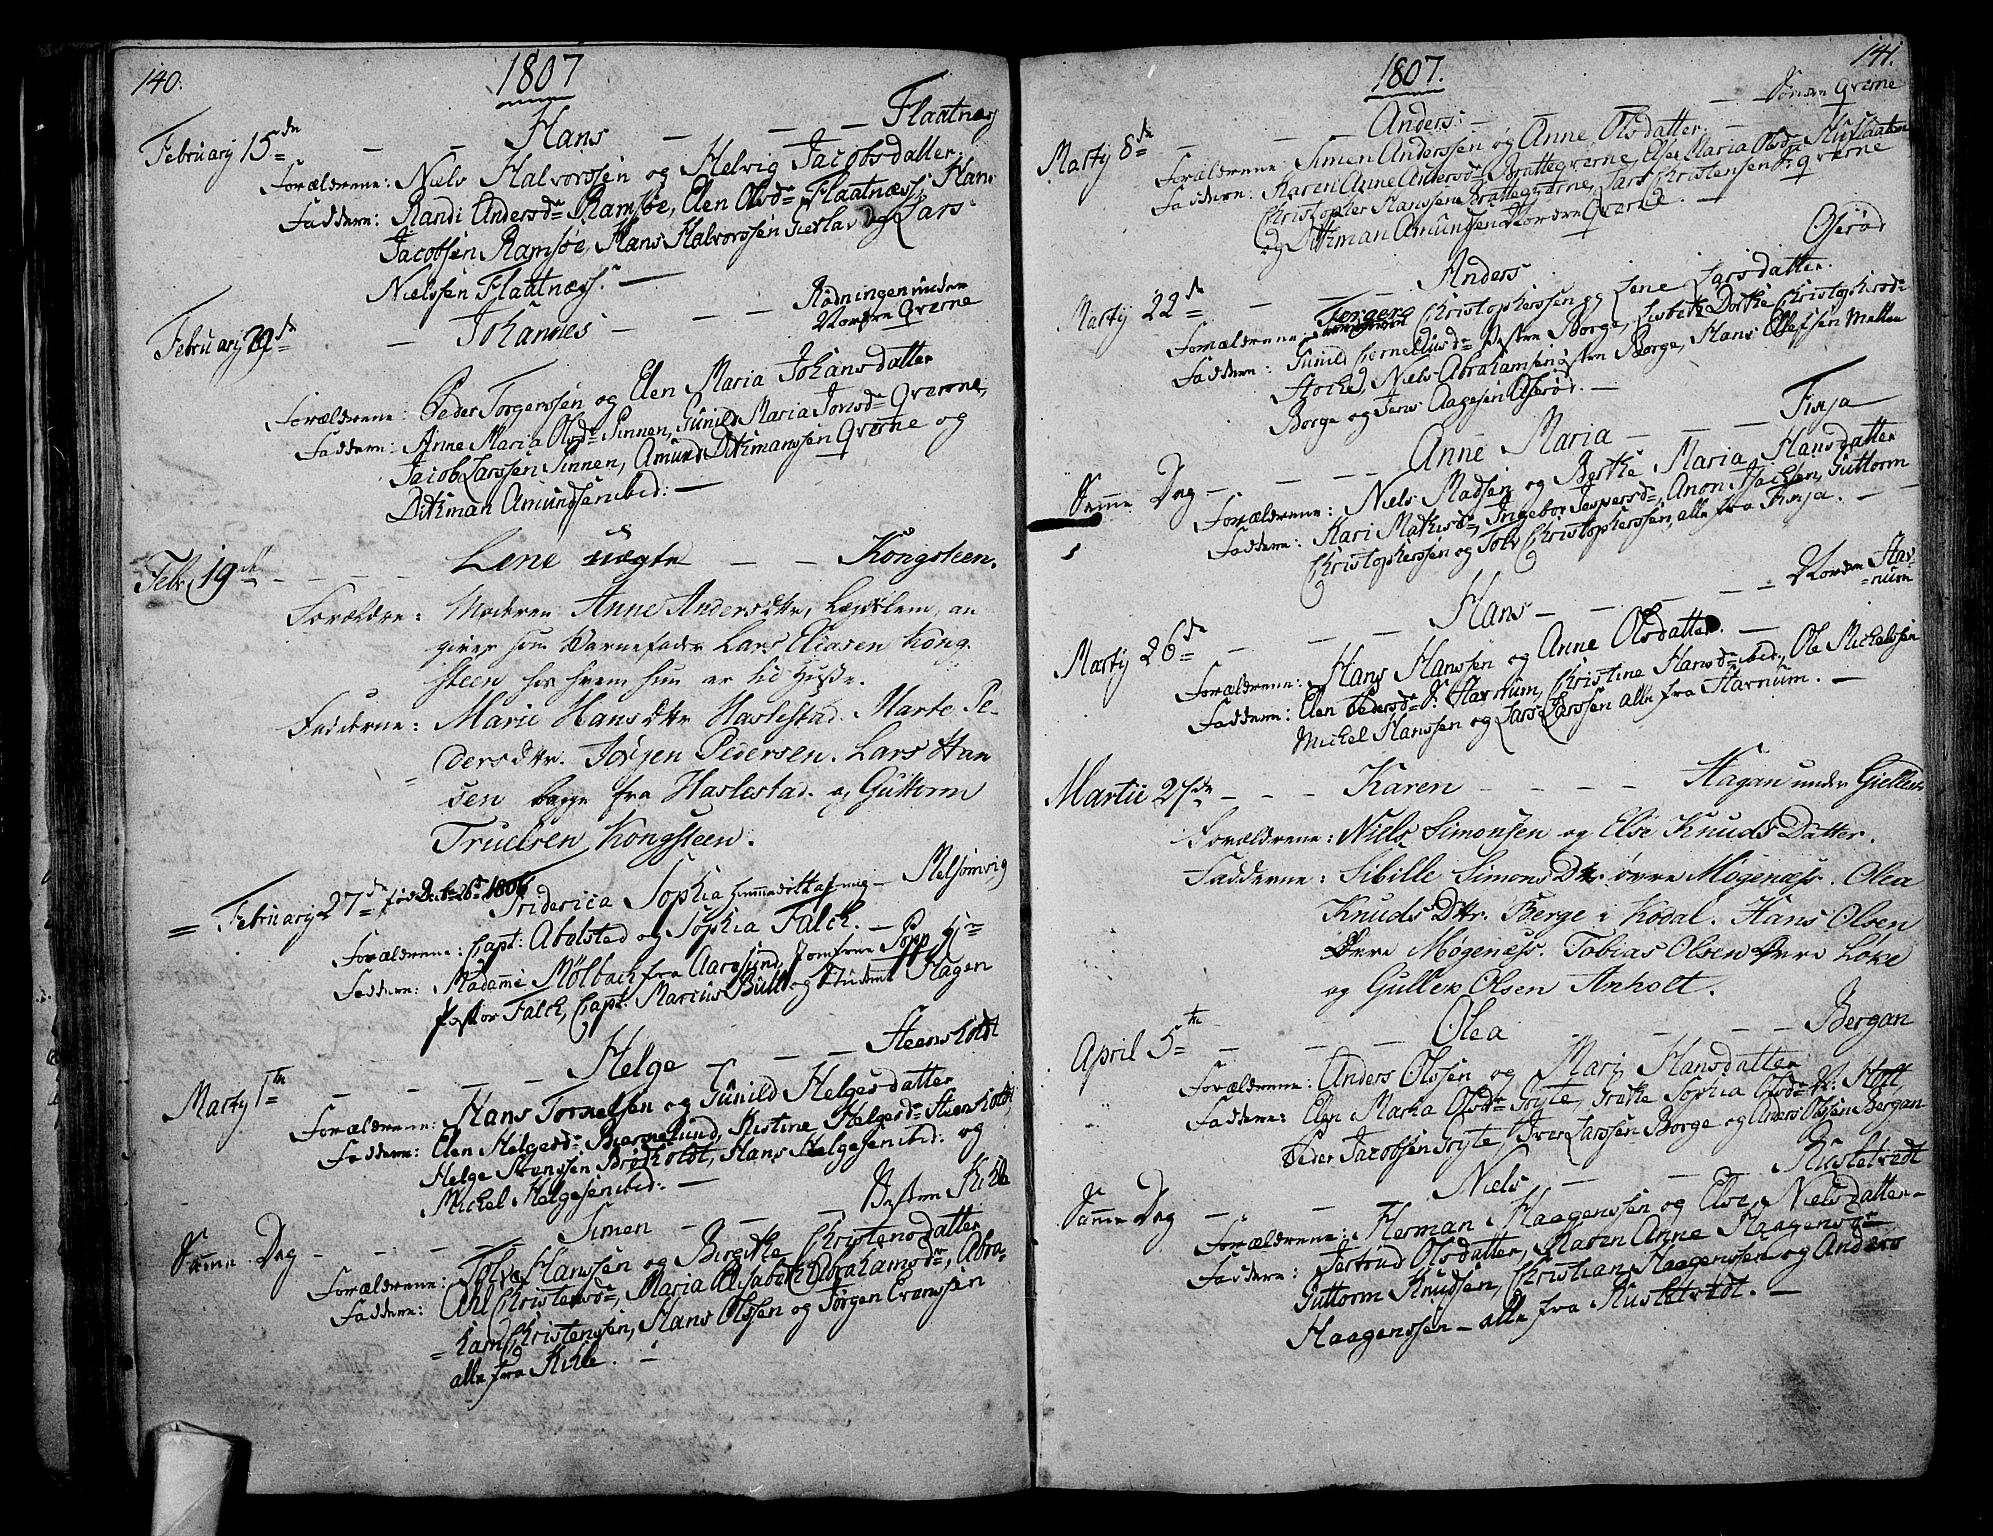 140.
1807
Februarij 15de — — Hans — — — Flaatnæs
Forældrene: Niels Halvorssen og Helvig Jacobsdatter.
Faddere: Randi Andersdr Ramsøe, Elen Olsdr Flaatnæss, Hans
Jacobsen Ramsøe, Hans Halvorssen og Lars
Nielssen Flaatnæss. —
Rødningen under
Februarij — Johannes — — — Nordre Qverne
Forældrene: Peder Torgerssen og Elen Maria Johansdatter
Faddere: Anne Maria Olsdr Sinnen, Gunild Maria Jonsdr Qverne,
Jacob Larssen Sinnen, Amund Ditmanssen Qverne og
Ditman Amundsen ibid: —
Febr. 19de — — — Lene uægte — — Kongsteen.
Forældre: Moderen Anne Andersdtr, an
giver som Barnefader Lars Eliasen Kong
steen hos hvem hun er til Huse.
Fadderne: Marie Hansdttr Haslestad. Marte Pe-
dersdttr. Jørgen Pedersen. Lars Han
sen begge fra Haslestad. og Guttorm
Truelsen Kongsteen.
Februarij 27de fød Decbr 26de 1806 Friderica Sophia hjemmedøbt af mig — Melsomvig
Forældrene: Capt: Abelsted og Sophia Falck. —
Faddere: Madame Mølbach fra Aarøsund, Jomfrue Popp,
Pastor Falck, Capt. Marcus Bull og Student Hagen
Martij 1te — — — Helge — — — Steensholdt
Forældrene: Hans Tornelsen og Gunild Helgesdatter
Faddere: Elen Helgesdr Bjernelund, Kistine Helgesdr Steensholdt,
Helge Brødholdt, Hans Helgesen ibid: og
Michel Helgesen ibid: —
Samme Dag — — — Simen — — — Vestre Kihle
Forældrene: Tolv Hanssen og Birgithe Christensdatter
Faddere: Christensdr, Maria Elisabeth Abrahamsdr, Abra-
ham Christenssen, Hans Olssen og Jørgen Evensen
alle fra Kihle. —
141.
1807.
Martij 8de — — — Anders: — — — Søndre Qverne
Forældrene: Simen Anderssen og Anne Olsdatter. —
Faddere: Karen Anne Andersdr Brattegverne, Else Maria Olsdr
Christopher Hanssen Brattegverne, Lars Christensen Qverne
og Ditman Amundsen Nordre Qverne. —
Martij 22de — — — Anders — Oserød
Forældrene: Torger Christopherssen og Lene Larsdatter.
Faddere: Gunild Corneliusdr Vestre Borge, Lisbeth Dorthe Christophersdr
Niels Abrahamsen østre Borge, Hans Ellefsen Mellem
Borge og Jens Aagesen Oserød. —
Samme Dag — — — Anne Maria — — — Furja
Forældrene: Niels Madsen og Berthe Maria Hansdatter
Faddere: Kari Mathisdr, Ingebor Jespersdr, Anon Isachsen, Guttorm
Christopherssen og Tolv Christopherssen, alle fra Furja. —
Martij 26de — — — Hans — — — Nordre Hav-
-num
Forældrene: Hans Hanssen og Anne Olsdatter. —
Faddere: Elen Pedersdr S: Havnum, Christine Hansdr ibid:, Ole Michelssen
Michel Hanssen og Lars Larssen alle fra Havnum. —
Martii 27de — — — Karen — — — Hagan under Giellen
Forældrene: Niels Simonsen og Else Knuds Datter.
Fadderne: Sibille Simons Dtr øvre Møgenæss. Olea
Knuds Dtr. Berge i Kodal. Hans Olsen
Øvre Møgenæss. Tobias Olsen Øvre Løke
og Gullek Olsen Anholt.
April 5te — — — Olea — — — Bergan
Forældrene: Anders Olssen og Marj Hansdatter
Faddere: Elen Maria Olsdr Tryte, Sophia Olsdr N: Holt,
Peder Jacobsen Tryte, Iver Larssen Borge og Anders Olssen Bergan
Samme Dag — — — Niels — — — Rustetvedt
Forældrene: Herman Haagenssen og Else Nielsdatter —
Faddere: Jertrud Olsdatter, Maren Anne Haagensdr
Guttorm Knudsen, Christian Haagenssen og Anders
Haagenssen — alle fra Rustetvedt. —